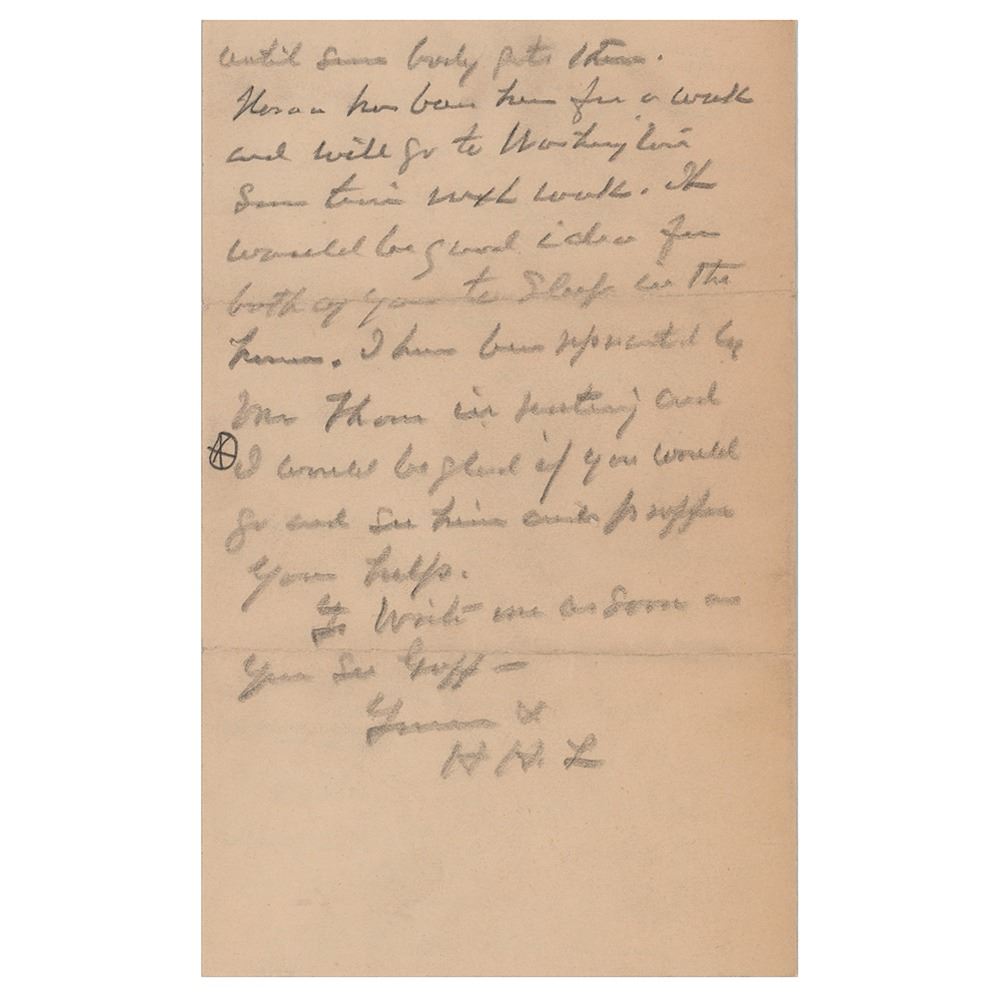 until some body gets there.
has been here for a week
and will go to Washington
Some time next week. It
would be good idea for
both of you to Sleep in the
house. I have been represented by
Mr Thom in and
I would be glad if you would
go and see him and proffer
your help.
Write me as soon as
you see Goff —
Yours &
H H. L